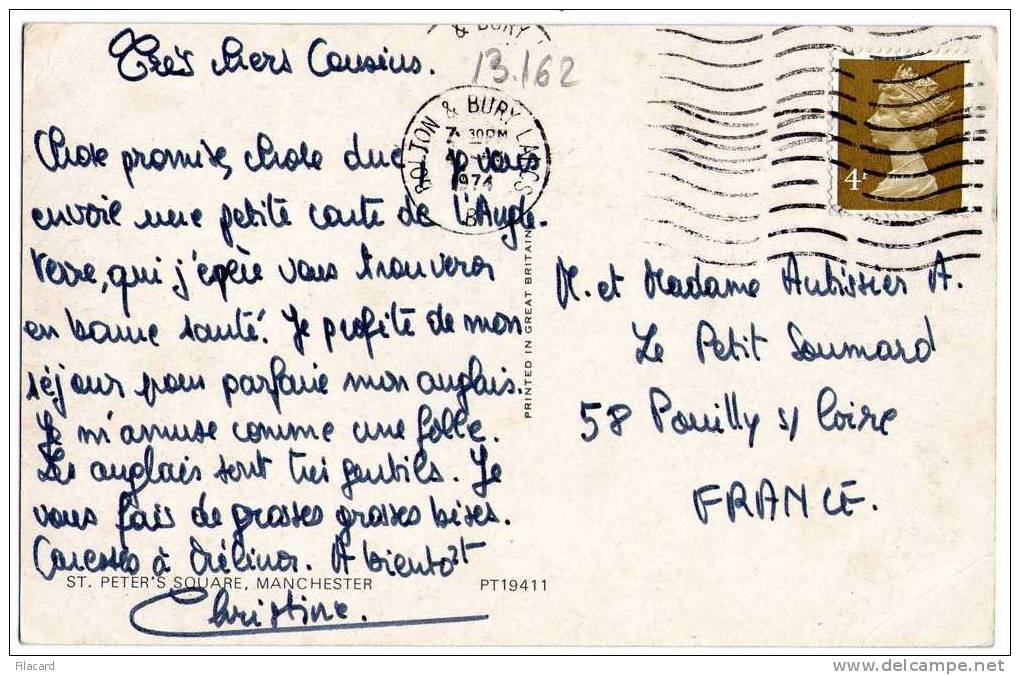 Très chers Cousins.
13.162
& BURY
BOLTON & BURY LANCS
7 30PM
1974
B
4P
Chose promise, chose due je vous
envoie une petite carte de l'Angle-
terre, qui j'espère vous trouvera
en bonne santé. Je profite de mon
séjour pour parfaire mon anglais.
Je m'amuse comme une folle.
Les anglais sont très gentils. Je
vous fais de grosses grosses bises.
Caresses à A bientôt
Christine.
ST. PETER'S SQUARE, MANCHESTER
PT19411
PRINTED IN GREAT BRITAIN
M. et Madame Aubissier A.
Le Petit Soumard
58 Pouilly s/ Loire
FRANCE.
Filacard
http://www.delcampe.net